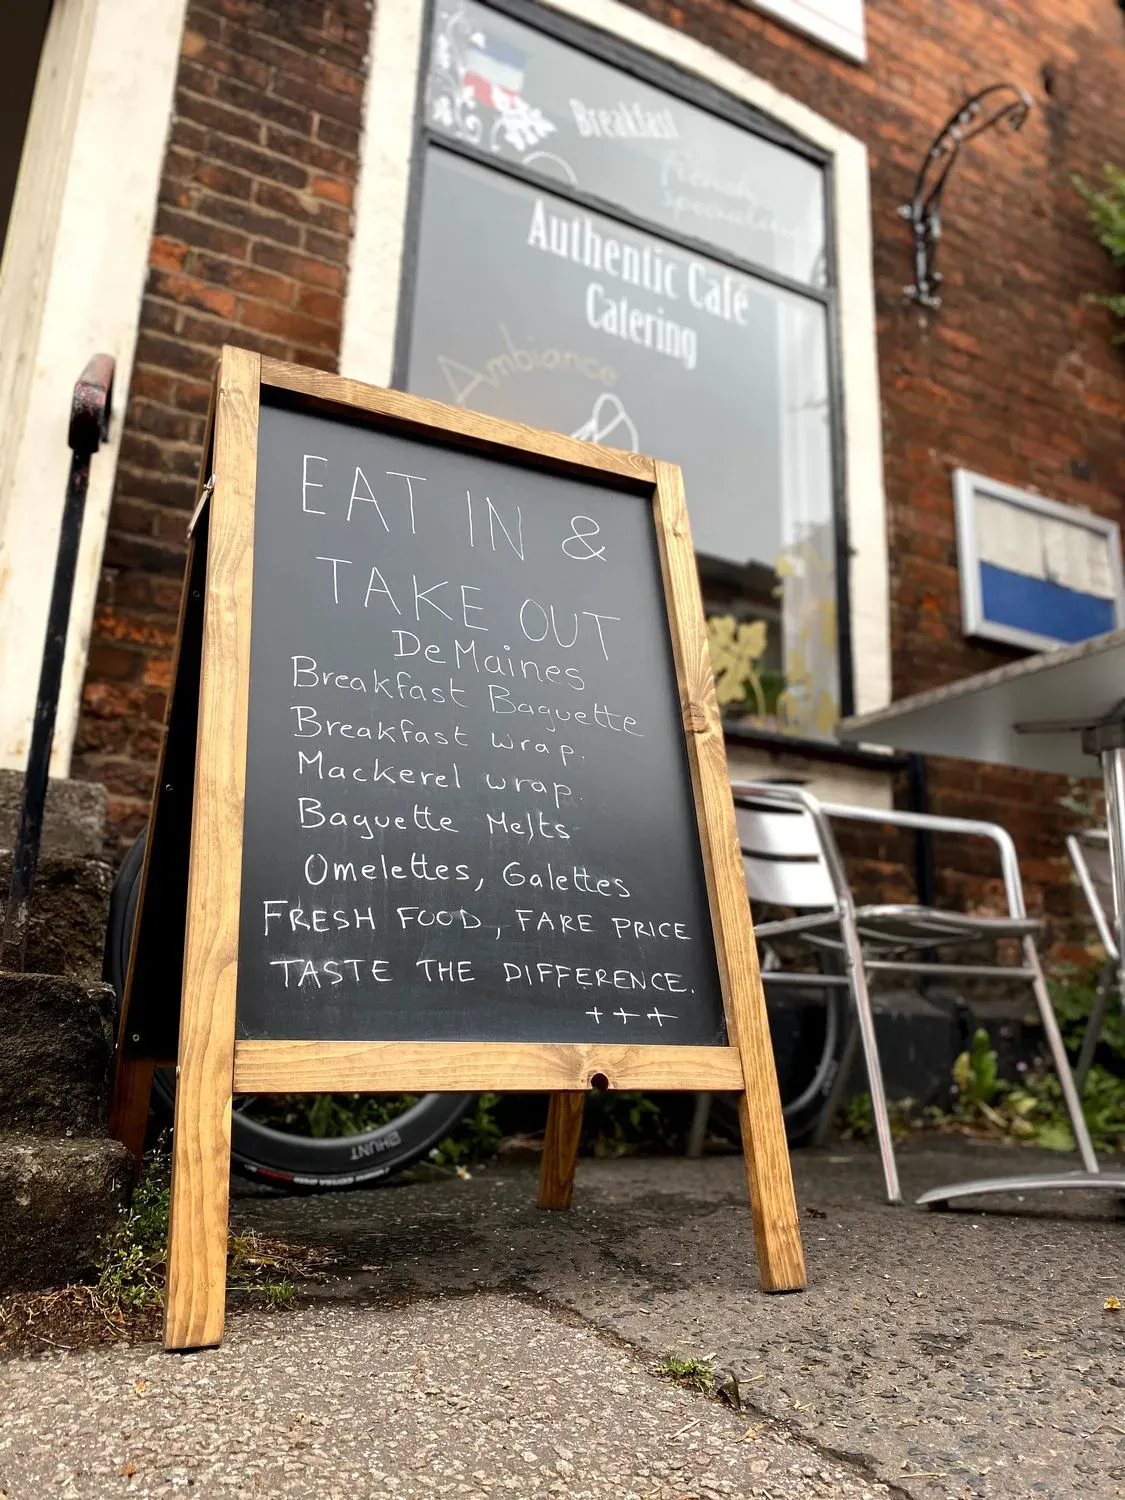 Breakfast
friendly
specialities
Authentic Café
Catering
Ambiance
EAT IN &
TAKE OUT
DeMaines
Breakfast Baguette
Breakfast wrap.
Mackerel wrap.
Baguette Melts
Omelettes, Galettes
FRESH FOOD, FARE PRICE
TASTE THE DIFFERENCE.
+++
HUNT